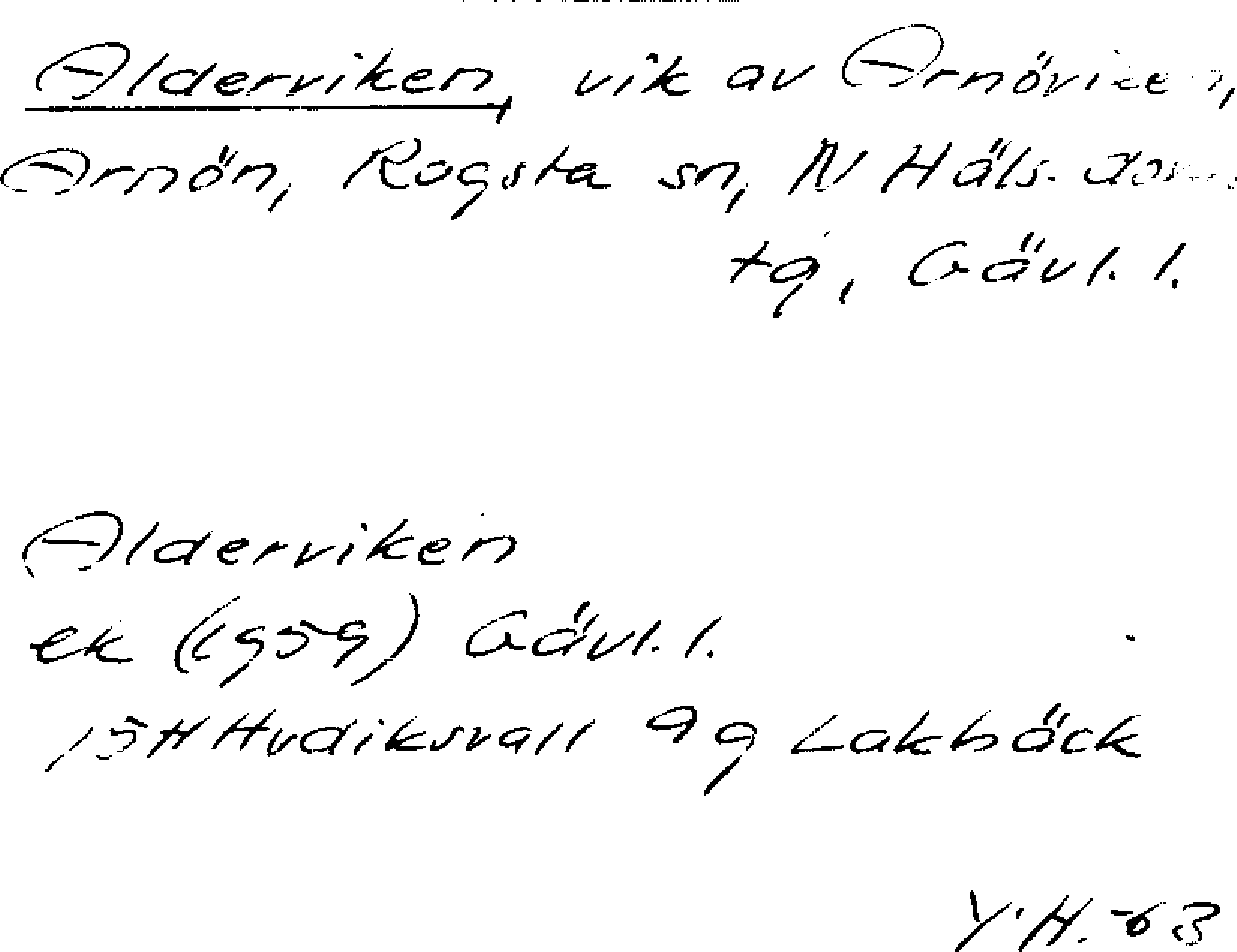 Alderviken, vik av Arnöviken,
Arnön, Rogsta sn, N Häls. dom
tg, Gävl. l.
Alderviken
ek (1959) Gävl. l.
15H Hudiksvall 9g Lakbäck
Y.H. -63